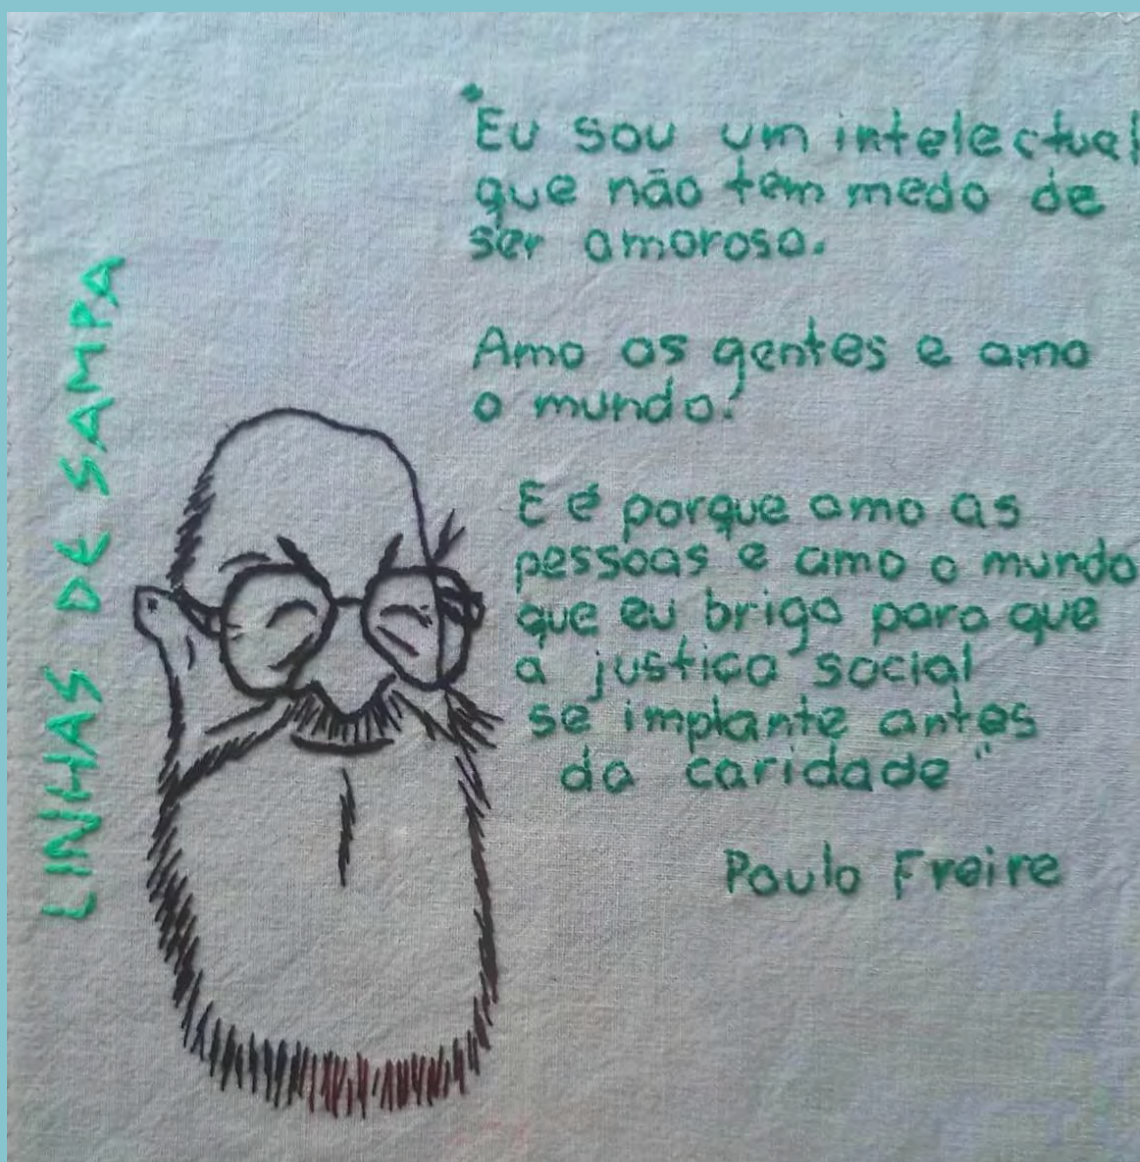 "Eu sou um intelectual
que não tem medo de
ser amoroso.
Amo as gentes e amo
o mundo.
E é porque amo as
pessoas e amo o mundo
que eu brigo para que
a justiça social
se implante antes
da caridade"
Paulo Freire
LINHAS DE SAMPA